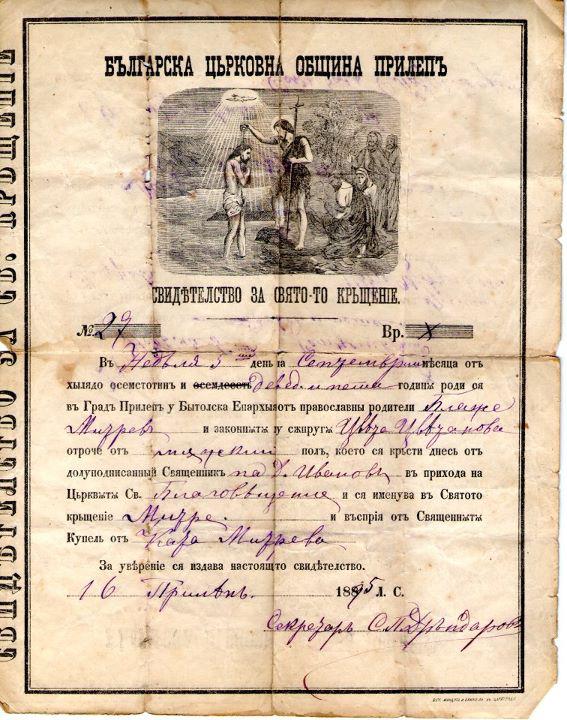 СВИДѢТЕЛСТВО ЗА СВ. КРЪЩЕНІЕ
БЪЛГАРСКА ЦЬРКОВНА ОБЩИНА ПРИЛЕПЪ
СВИДѢТЕЛСТВО ЗА СВЯТО-ТО КРЬЩЕНІЕ.
№ 29 Вр. X
Въ Недѣля 5 день на Септемврий мѣсяца отъ
хылядо осемстотин и осемдесеть деведес и пета годинѫ роди ся
въ Градъ Прилепъ у Бытолска Епархыѭ отъ православны родители Блаже
Митрев и законнѫтѫ му сжпругѫ Цвѣта Цвѣтанова
отроче отъ мѫжский полъ, което ся крьсти днесь отъ
долуподписанный Священникъ па Д. Ивановъ въ прихода на
Църквѫтѫ Св. Благовѣщение и ся именува въ Святото
крьщеніе Митре. и въспрія отъ Священнѫтѫ
Купель отъ Ката Митрева
За увѣреніе ся издава настоящто свидѣтелство.
16 Прилѣпъ. 1895 Л. С.
Секретарь С. П.